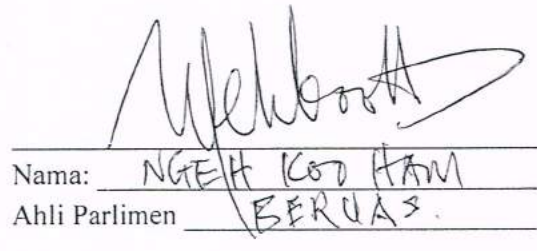 Nama: NGEH KOO HAM
Ahli Parlimen BERUAS.